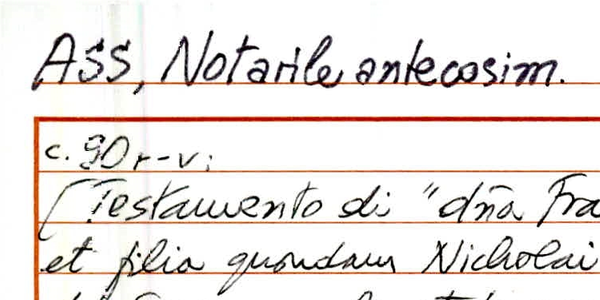 ASS, Notarile antecosim.
c. 90r-v;
[Testamento di "dña Fra
et filia quondam Nicholai